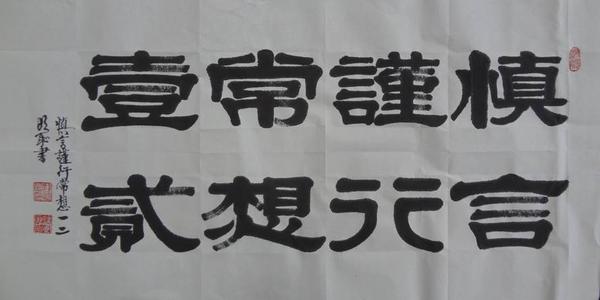 慎言
謹行
常想
壹貳
慎言謹行常想一二
書